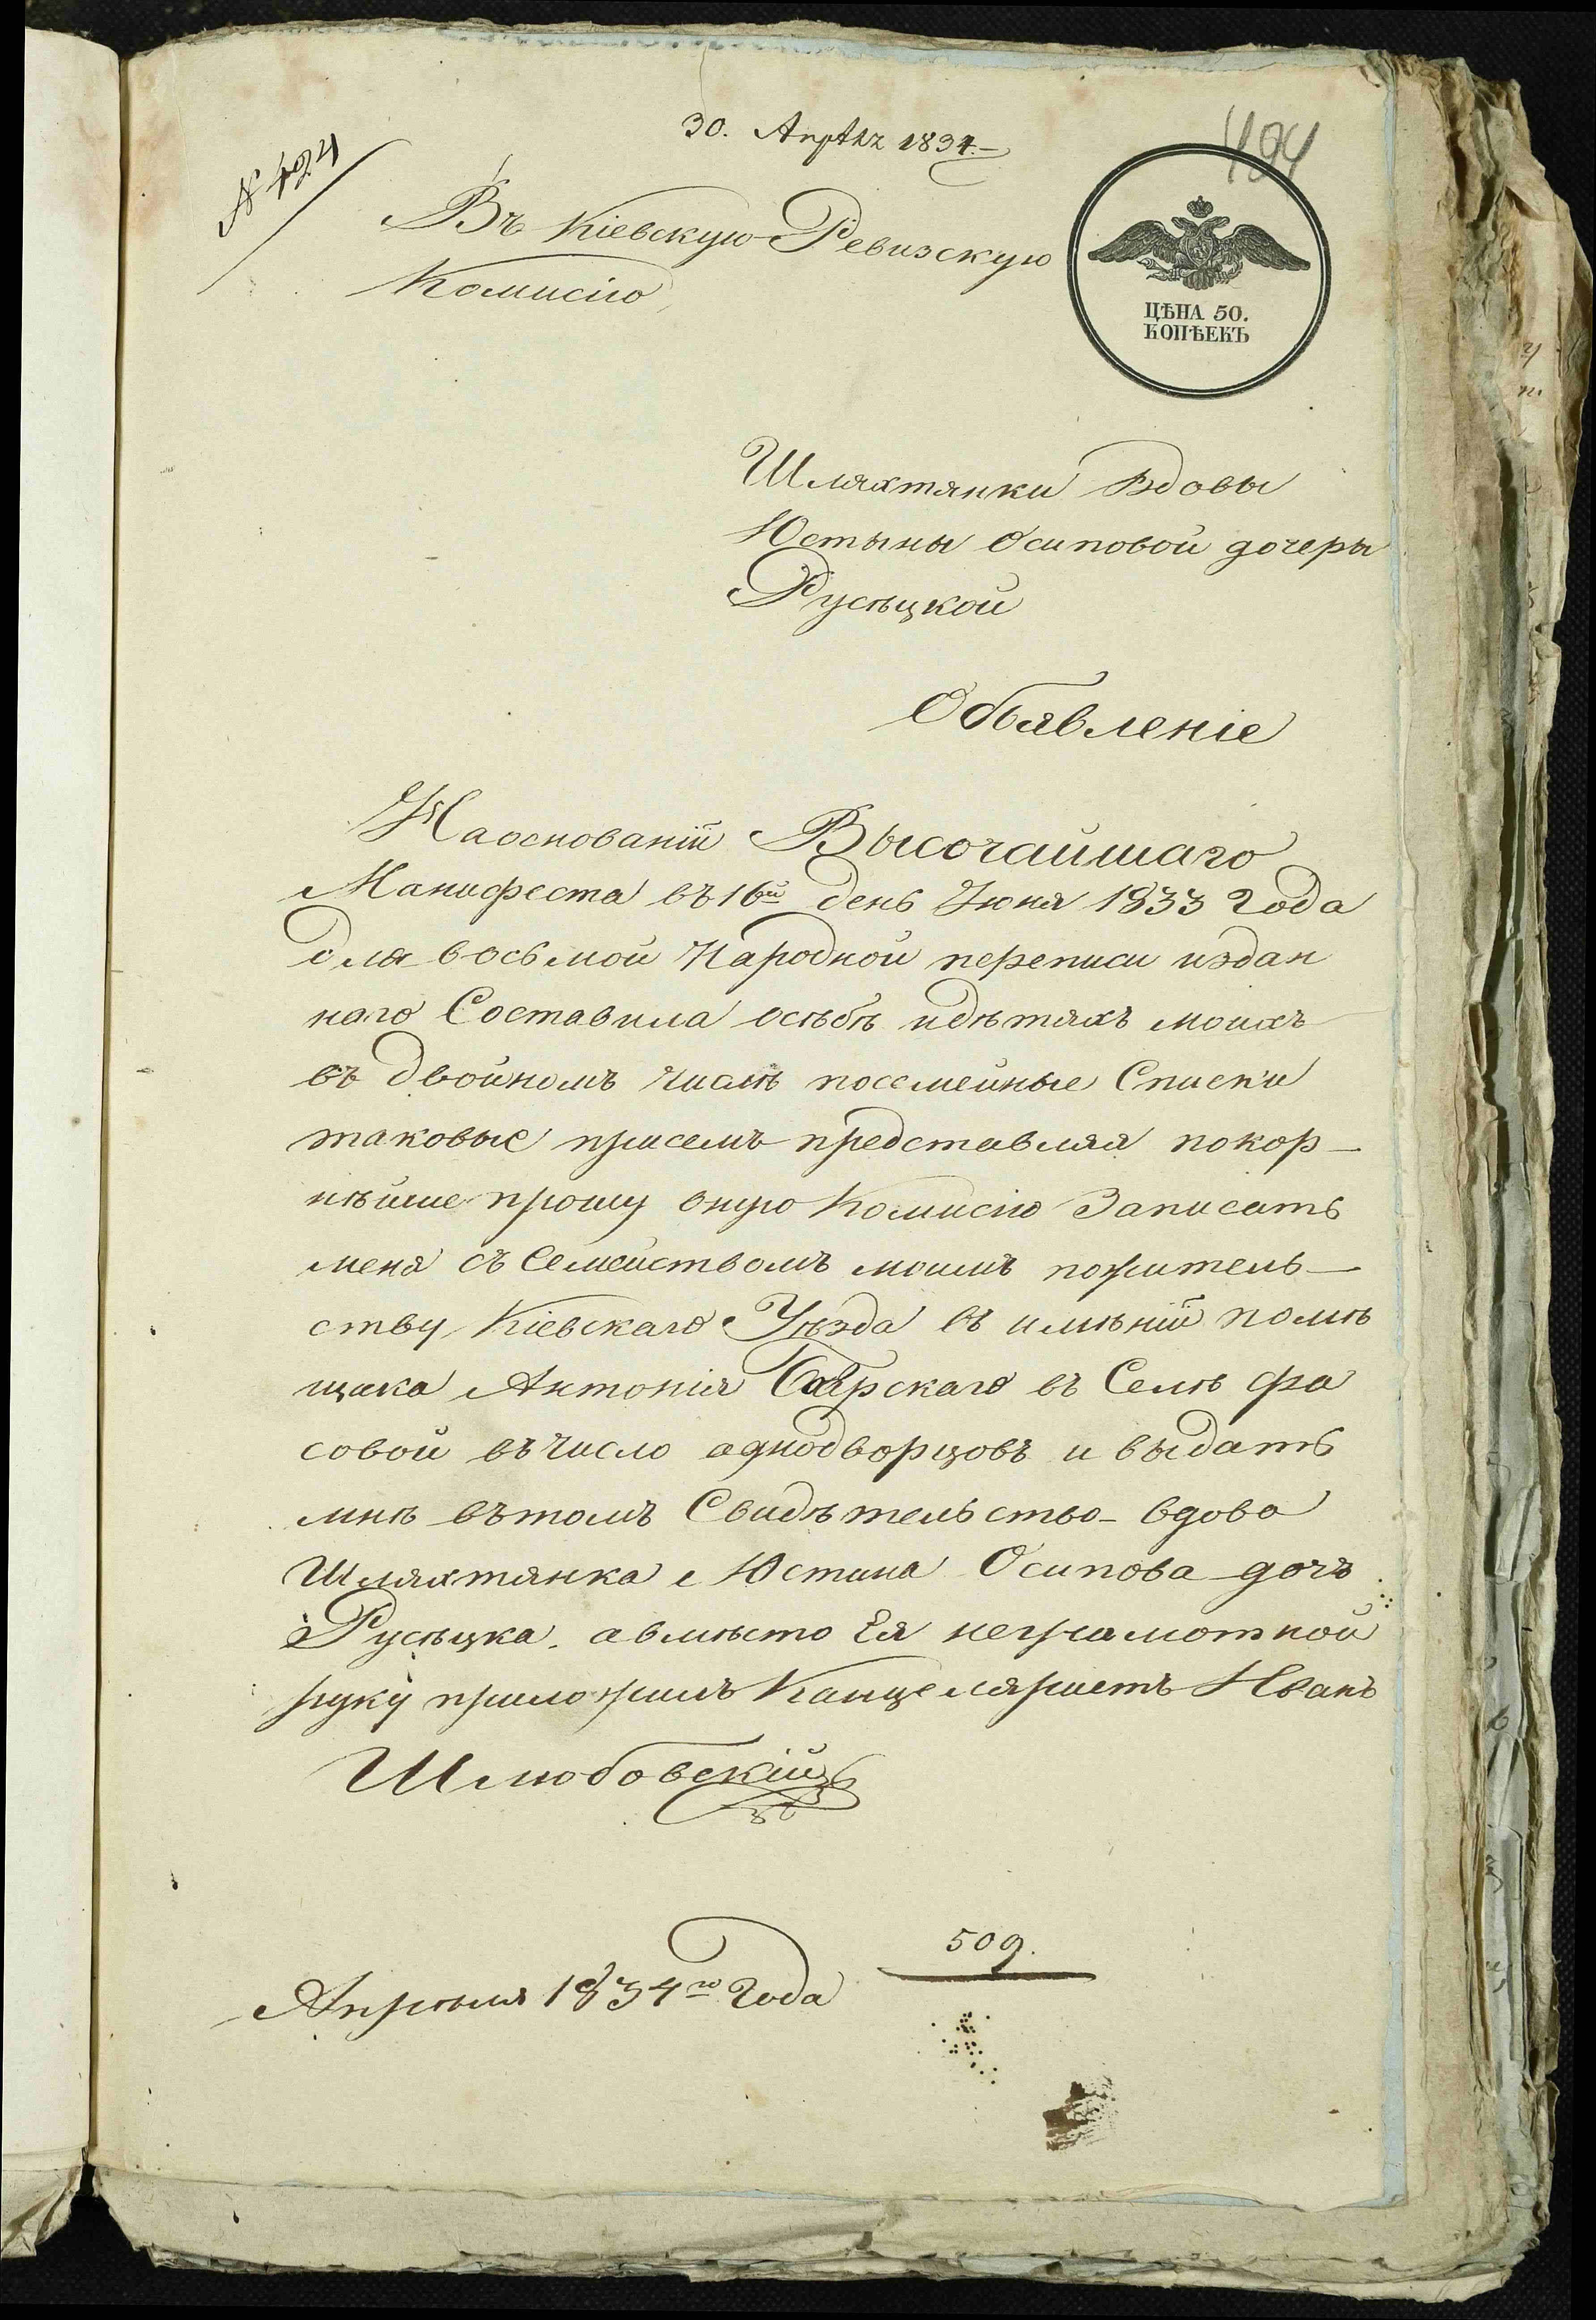 30. Апрѣля 1834.
494
№ 424
Въ Кіевскую Ревизскую
Комисію
ЦѢНА 50.
КОПѢЕКЪ
Шляхтянки Вдовы
Юстыны Осиповой дочеры
Русѣцкой
Объявленіе
Наоснованіи Высочайшаго
Манифеста въ 16й день Іюня 1833 Года
для восьмой Народной переписи издан
наго Составила осѣбѣ идѣтяхъ моихъ
въ двойномъ числѣ посемейные Списки
таковые присемъ представляя покор-
нѣйше прошу оную Комисію Записать
меня съ Семействомъ моимъ пожитель-
ству Кіевскаго Уѣзда въ имѣніи помѣ
щика Антонія в Селѣ Фа
совой въ число аднодворцовъ и выдать
мнѣ вътомъ Свидѣтельство - вдова
Шляхтянка Юстина Осипова дочъ
Русѣцка. авмѣсто Ея неграмотной
руку приложилъ Канцеляристъ Иванъ
Шлюбовскій
509.
Апрѣля 1834го Года